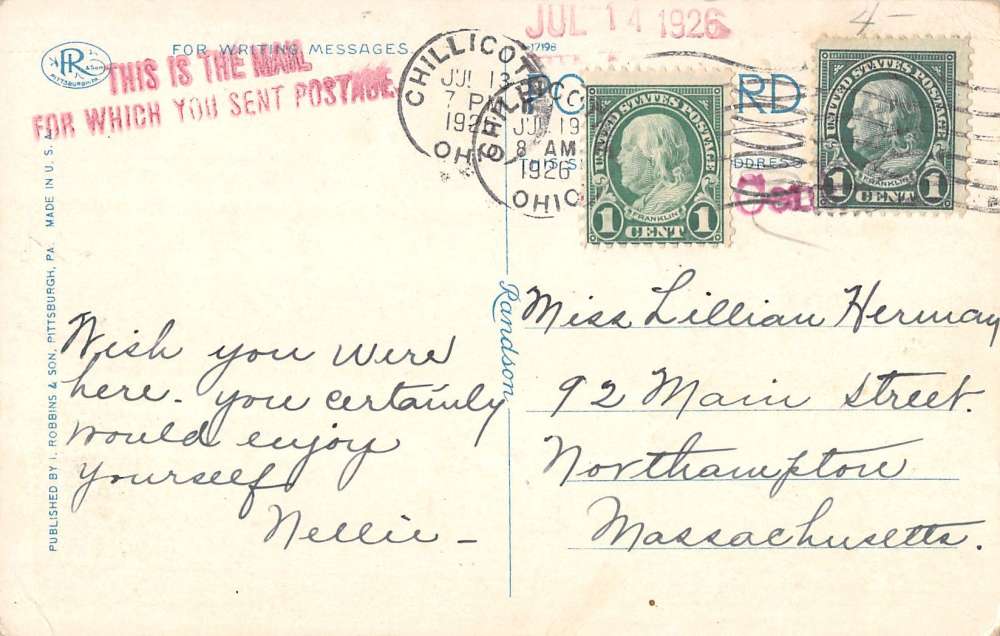 JUL 14 1926
4-
R
& SON
PITTSBURGH PA.
FOR WRITING MESSAGES
17198
THIS IS THE MAIL
FOR WHICH YOU SENT POSTAGE
CHILLICOTHE
JUL 13
7 P
192
OHIO
JUL 19
8 AM
1926
OHIO
RD
THIS S
DDRESS
UNITED STATES POSTAGE
FRANKLIN
1 CENT 1
UNITED STATES POSTAGE
FRANKLIN
1 CENT 1
PUBLISHED BY I. ROBBINS & SON, PITTSBURGH, PA. MADE IN U. S. A.
Randson
Wish you were
here. you certainly
would enjoy
yourself
Nellie -
Miss Lillian Herman
92 Main Street.
Northampton
Massachusetts.